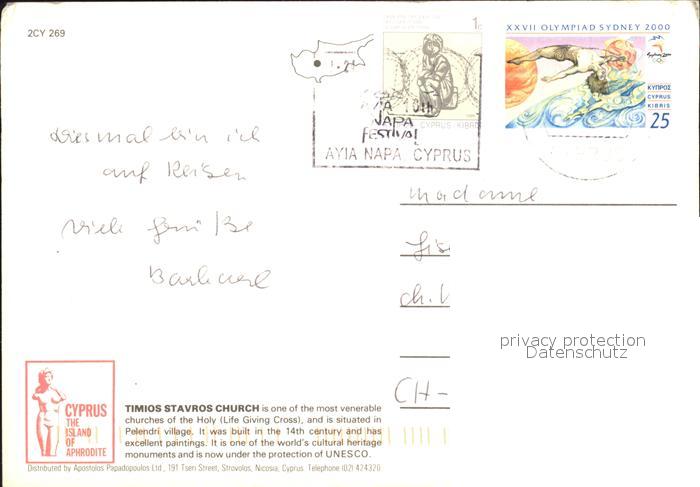 2CY 269
1c
XXVII OLYMPIAD SYDNEY 2000
Sydney 2000
ΚΥΠΡΟΣ
CYPRUS
KIBRIS
25
10th
NAPA
FESTIVAL
CYPRUS · KIBRIS
AYIA NAPA CYPRUS
Diesmal bin ich
auf Reisen
Viele Grüße
Madame
ch.
CH-
privacy protection
Datenschutz
CYPRUS
THE
ISLAND
OF
APHRODITE
TIMIOS STAVROS CHURCH is one of the most venerable
churches of the Holy (Life Giving Cross), and is situated in
Pelendri village. It was built in the 14th century and has
excellent paintings. It is one of the world's cultural heritage
monuments and is now under the protection of UNESCO.
Distributed by Apostolos Papadopoulos Ltd., 191 Tseri Street, Strovolos, Nicosia, Cyprus Telephone (02) 424320